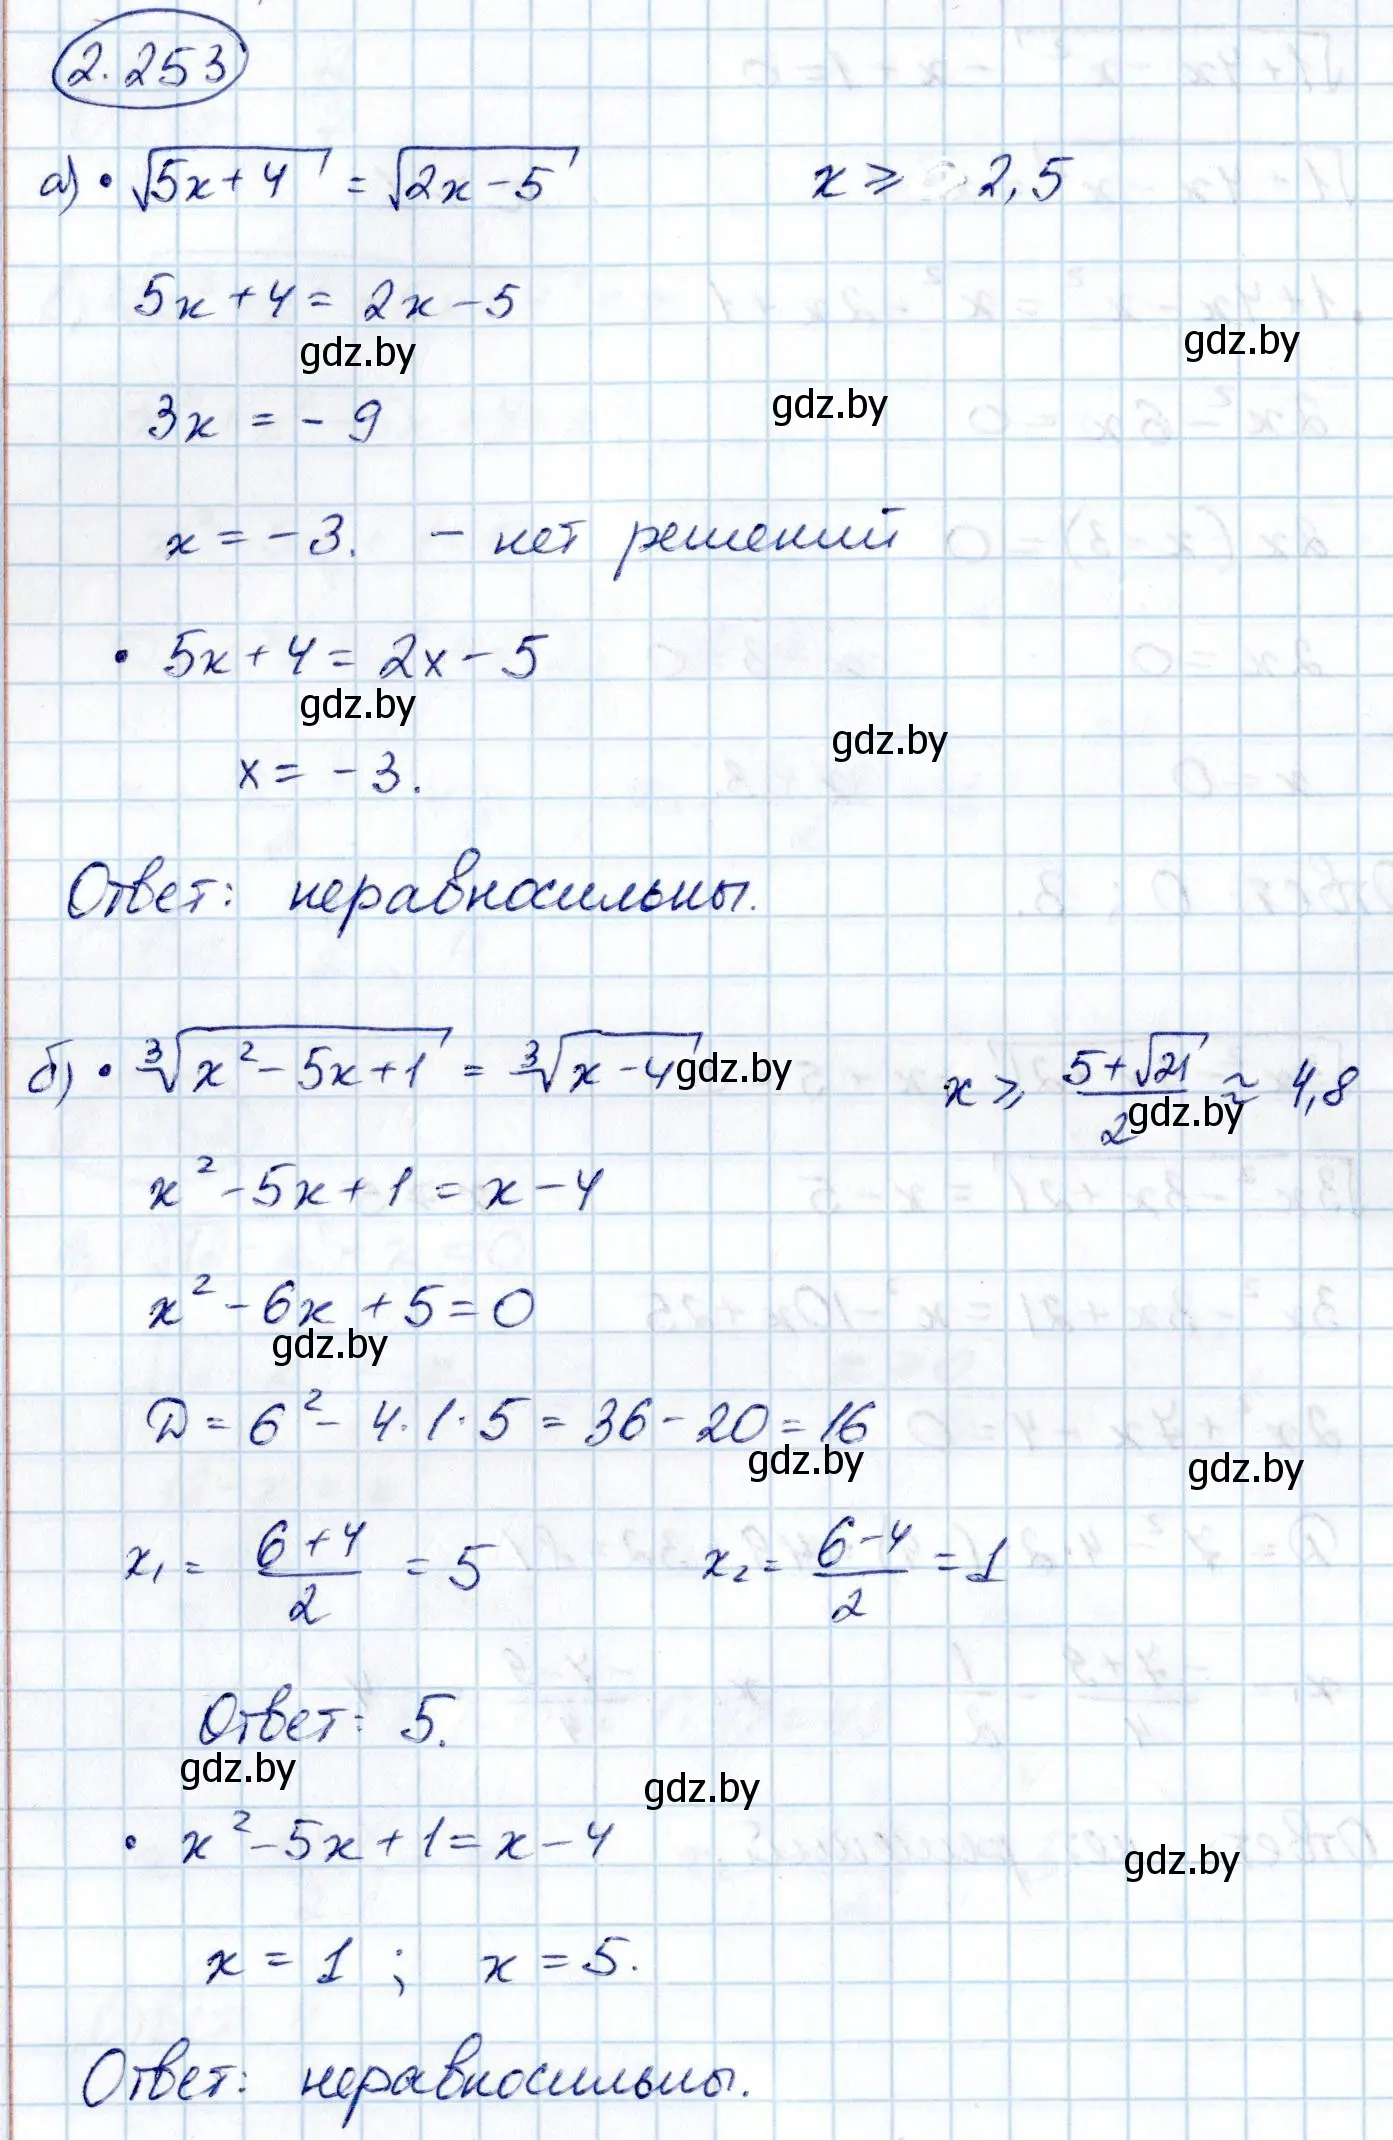 2.253
а) • √(5x+4) = √(2x-5) x ⩾ 2,5
5x+4 = 2x-5
gdz.by gdz.by
gdz.by
3x = -9
x = -3. - нет решений
• 5x+4 = 2x-5
gdz.by gdz.by
x = -3.
Ответ: неравносильны.
б) • ∛(x²-5x+1) = ∛(x-4) gdz.by x ⩾ (5+√21)/2 ≈ 4,8
gdz.by
x²-5x+1 = x-4
x²-6x+5=0
gdz.by
D = 6²-4·1·5 = 36-20 = 16
gdz.by gdz.by
x₁ = (6+4)/2 = 5 x₂ = (6-4)/2 = 1
Ответ: 5.
gdz.by gdz.by
• x²-5x+1 = x-4
gdz.by
x = 1 ; x = 5.
Ответ: неравносильны.